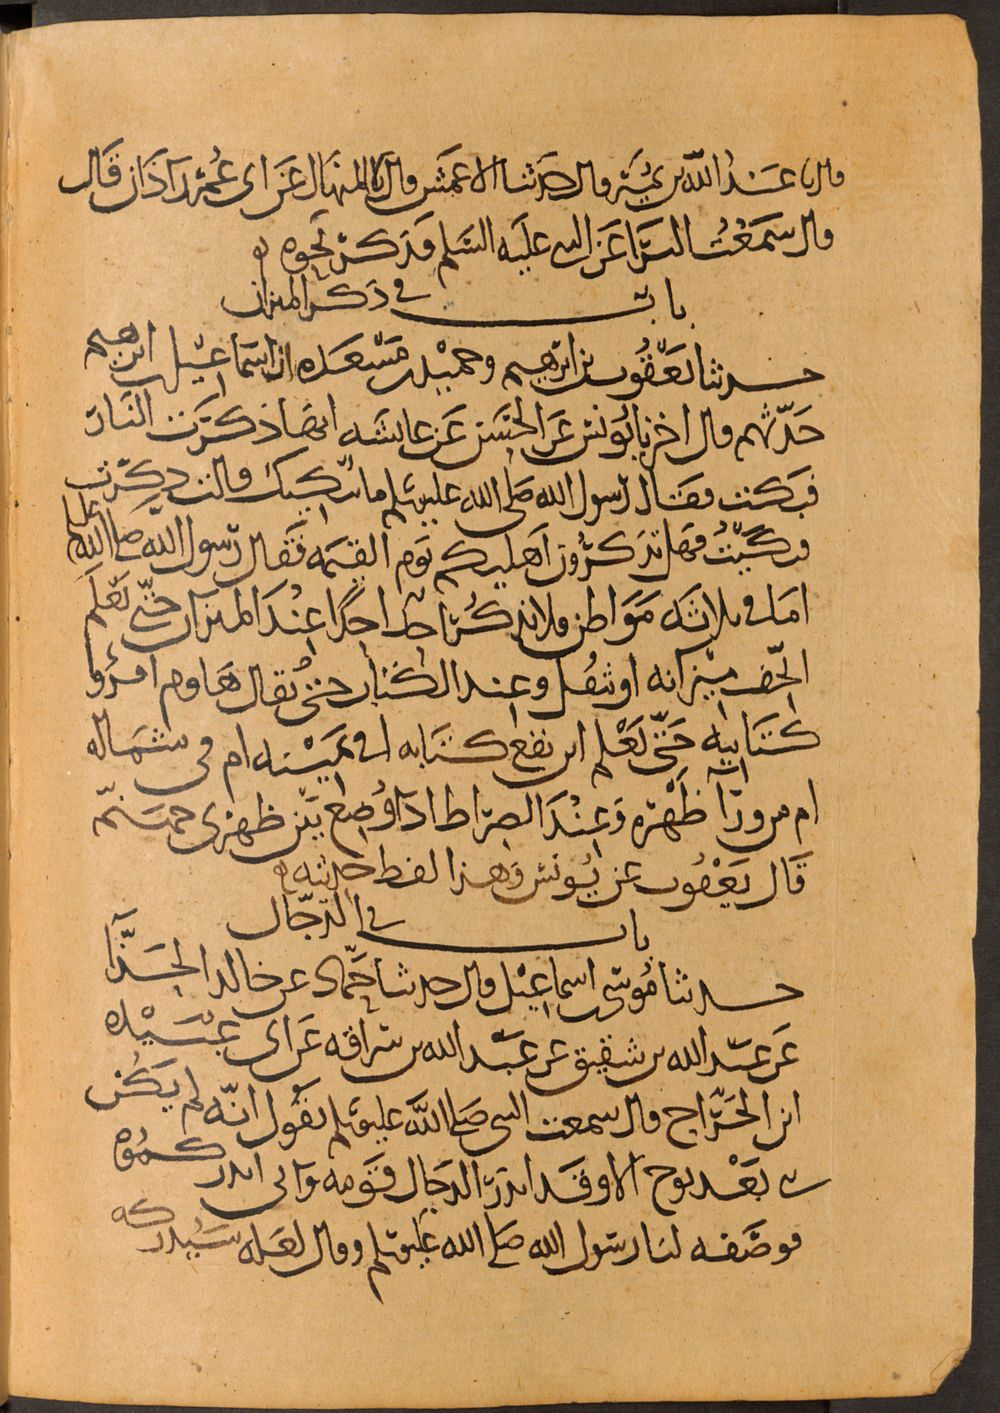 قال نا عبد الله بن نمير قال حدثنا الاعمش قال نا المنهال عن ابى عمر زاذان قال
قال سمعت البرا عن النبى عليه السلم فذكر نحوه
باب فى ذكر الميزان
حدثنا يعقوب بن ابرهيم وحميد بن مسعده ان اسماعيل بن ابرهيم
حدثهم قال اخبرنا يونس عن الحسن عن عايشه انها ذكرت النار
فبكت فقال رسول الله صلى الله عليه وسلم ما يبكيك قالت ذكرت
فبكيت فهل تذكرون اهليكم يوم القيمه فقال رسول الله صلى الله عليه
اما فى ثلاثه مواطن فلا يذكر احد احدا عند الميزان حتى يعلم
ايخف ميزانه او يثقل وعند الكتاب حتى يقال هاوم اقروا
كتابيه حتى يعلم اين يقع كتابه افى يمينه ام فى شماله
ام من ورآ ظهره وعند الصراط اذا وضع بين ظهرى جهنم
قال يعقوب عن يونس وهذا لفظ حديثه
باب فى الدجال
حدثنا موسى اسماعيل قال حدثنا حماد عن خالد الحذآ
عن عبد الله بن شقيق عن عبد الله بن سراقه عن ابى عبيده
ابن الجراح قال سمعت النبى صلى الله عليه وسلم يقول انه لم يكن
نبى بعد نوح الا وقد انذر الدجال قومه وانى انذركموه
فوصفه لنا رسول الله صلى الله عليه وسلم وقال لعله سيدركه